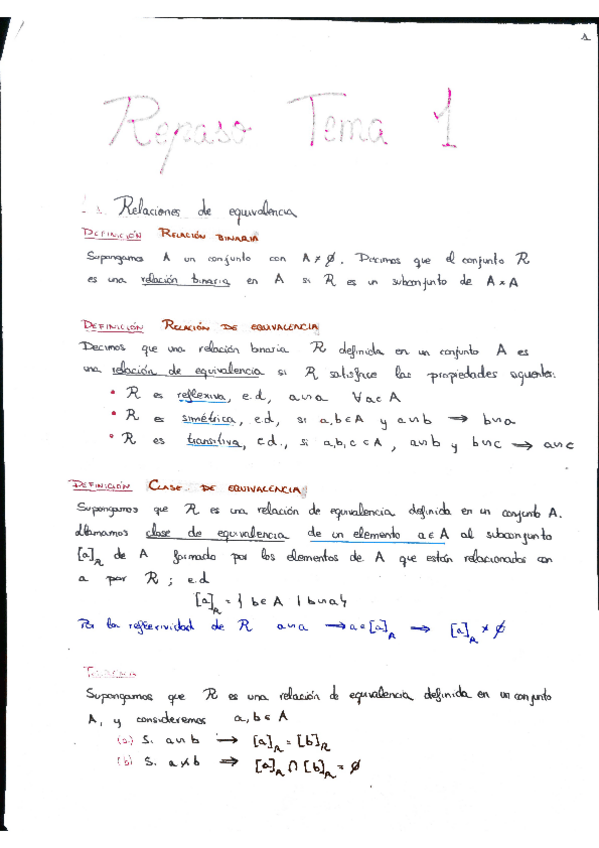 1
Repaso Tema 1
1. Relaciones de equivalencia
DEFINICIÓN RELACIÓN BINARIA
Supongamos A un conjunto con A ≠ ∅. Decimos que el conjunto R
es una relación binaria en A si R es un subconjunto de A×A
DEFINICIÓN RELACIÓN DE EQUIVALENCIA
Decimos que una relación binaria R definida en un conjunto A es
una relación de equivalencia si R satisface las propiedades siguientes:
• R es reflexiva, e.d, a∼a ∀a∈A
• R es simétrica, e.d, si a,b∈A y a∼b → b∼a
• R es transitiva, e.d., si a,b,c∈A, a∼b y b∼c → a∼c
DEFINICIÓN CLASE DE EQUIVALENCIA
Supongamos que R es una relación de equivalencia definida en un conjunto A.
Llamamos clase de equivalencia de un elemento a∈A al subconjunto
[a]_R de A formado por los elementos de A que están relacionados con
a por R; e.d
[a]_R = { b∈A | b∼a}
Por la reflexividad de R a∼a → a∈[a]_R → [a]_R ≠ ∅
TEOREMA
Supongamos que R es una relación de equivalencia definida en un conjunto
A, y consideremos a,b∈A
(a) Si a∼b → [a]_R = [b]_R
(b) Si a≁b → [a]_R ∩ [b]_R = ∅